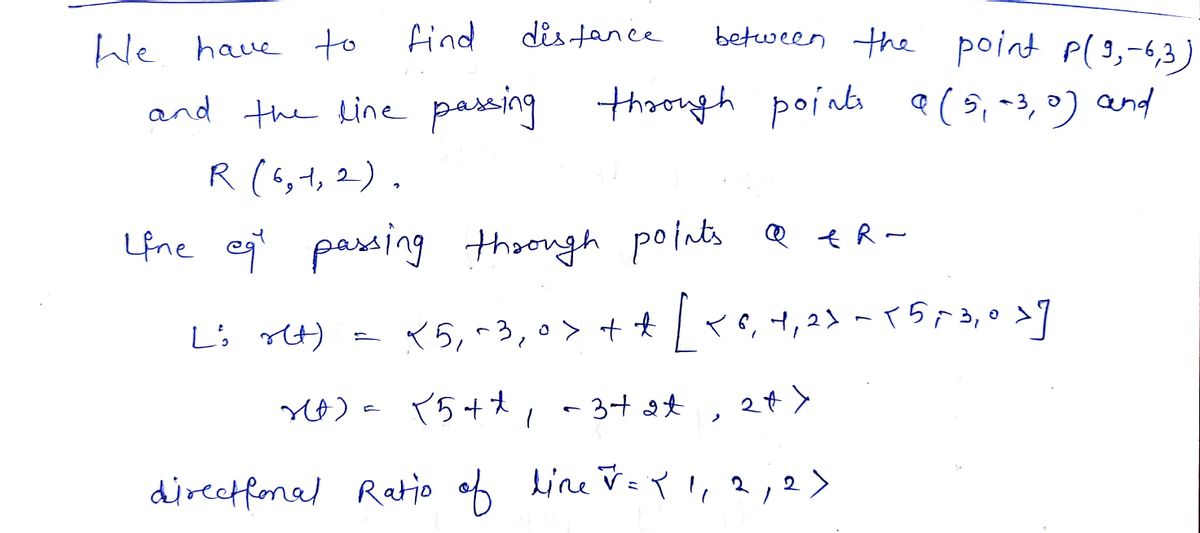 We have to find distance between the point P(9,-6,3)
and the line passing through points Q(5,-3,0) and
R(6,-1,2).
Line eqⁿ passing through points Q & R –
L: r(t) = <5,-3,0> + t[<6,-1,2> - <5,-3,0>]
r(t) = <5+t, -3+2t, 2t>
directional Ratio of line v̄ = <1,2,2>